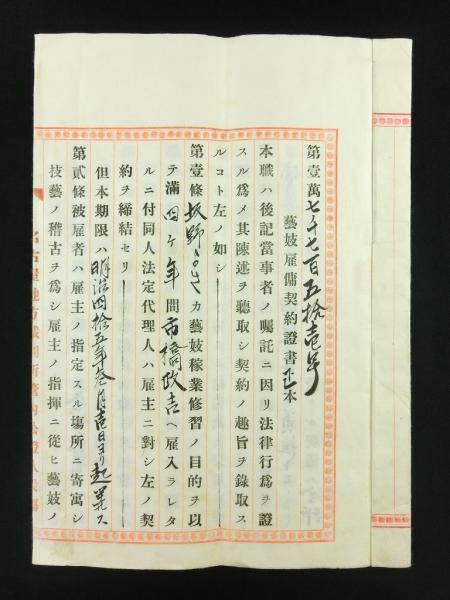 第壹萬七千七百五拾壱号
藝妓雇傭契約證書正本
本職ハ後記當事者ノ囑託ニ因リ法律行爲ヲ證
スル爲メ其陳述ヲ聽取シ契約ノ趣旨ヲ錄取ス
ルコト左ノ如シ
第壹條坂野 カ藝妓稼業修習ノ目的ヲ以
テ滿四ヶ年間市橋政吉ヘ雇入ラレタ
ルニ付同人法定代理人ハ雇主ニ對シ左ノ契
約ヲ締結セリ
但本期限ハ明治四拾五年 月壱日ヨリ起算ス
第貳條被雇者ハ雇主ノ指定スル塲所ニ寄寓シ
技藝ノ稽古ヲ爲シ雇主ノ指揮ニ從ヒ藝妓ノ